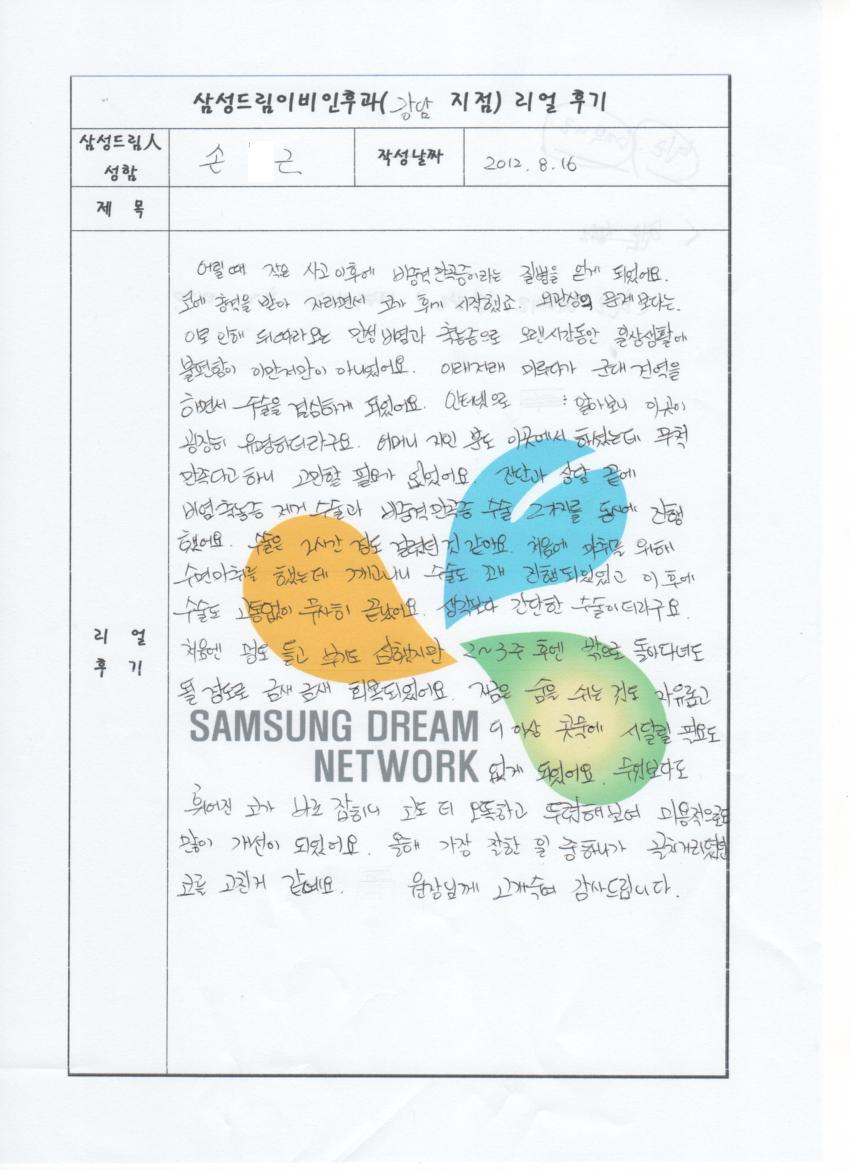 삼성드림이비인후과(강남 지점) 리얼 후기
삼성드림人
성함
손 근
작성날짜
2012. 8. 16
제 목
리 얼
후 기
어릴 때 작은 사고 이후에 비중격 만곡증이라는 질병을 얻게 되었어요.
코에 충격을 받아 자라면서 코가 휘게 시작했죠. 외관상의 문제보다는.
이로 인해 뒤따라오는 만성 비염과 축농증으로 오랜시간동안 일상생활에
불편함이 이만저만이 아니었어요. 이래저래 미루다가 군대 전역을
하면서 수술을 결심하게 되었어요. 인터넷으로 알아보니 이곳이
굉장히 유명하더라구요. 어머니 지인 분도 이곳에서 하셨는데 무척
만족다고 하니 고민할 필요가 없었어요. 진단과 상담 끝에
비염·축농증 제거 수술과 비중격 만곡증 수술 2가지를 동시에 진행
했어요. 수술은 2시간 정도 걸렸던 것 같아요. 처음에 마취를 위해
수면마취를 했는데 자고나니 수술도 진행되있었고 이 후에
수술도 고통없이 무사히 끝났어요. 생각보다 간단한 수술이더라구요.
처음엔 멍도 들고 붓기도 심했지만 2~3주 후엔 밖으로 돌아다녀도
될 정도로 금새 금새 회복되었어요. 지금은 숨을 쉬는 것도 자유롭고
더 이상 콧물에 시달릴 필요도
없게 되었어요. 무엇보다도
휘어진 코가 바로 잡히니 코도 더 오똑하고 뚜렷해보여 미용적으로도
많이 개선이 되었어요. 올해 가장 잘한 일 중 하나가
코를 고친거 같네요. 원장님께 고개숙여 감사드립니다.
SAMSUNG DREAM
NETWORK